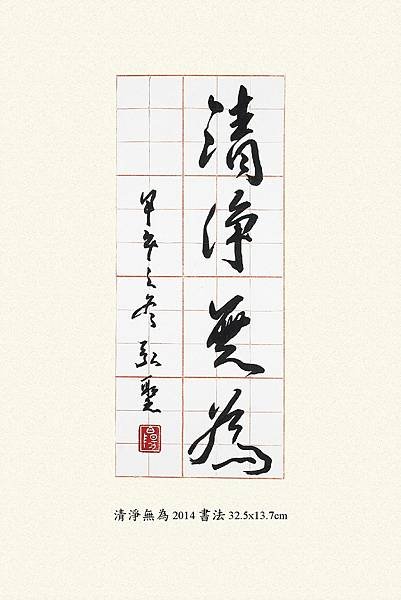 清淨無為
甲午之冬
清淨無為 2014 書法 32.5x13.7cm